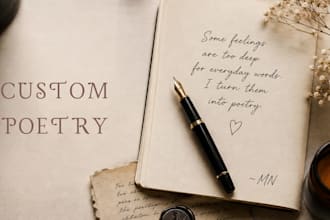 CUSTOM
POETRY
Some feelings
are too deep
for everyday words.
I turn them
into poetry.
~MN